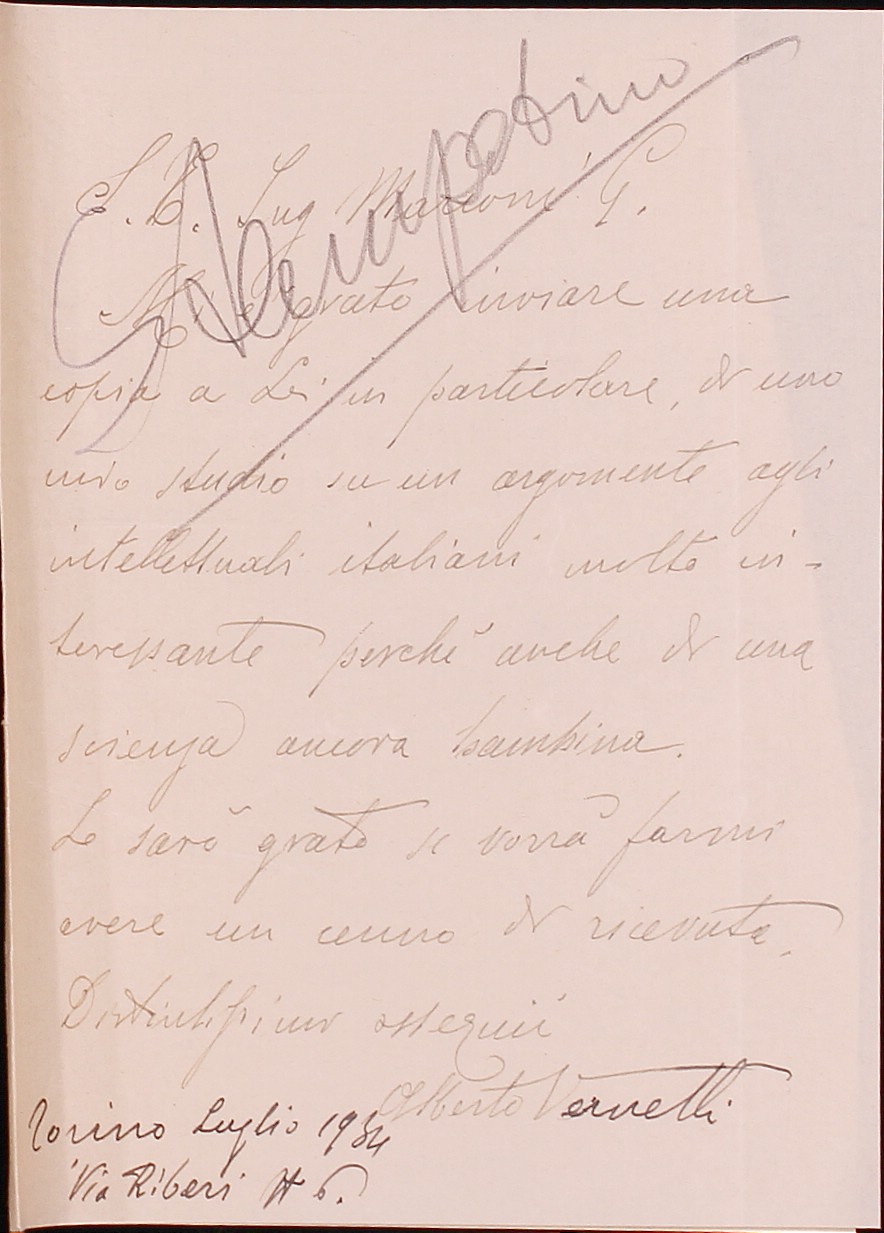 S. E. Ing Marconi G.
Mi è grato inviare una
copia a Lei in particolare, di uno
mio studio su un argomento agli
intellettuali italiani molto in-
teressante perchè anche di una
scienza ancora bambina.
Le sarò grato se vorrà farmi
avere un cenno di ricevuta.
Distintissimi ossequii
Alberto Vernetti
Torino Luglio 1934
Via Riberi N 6.